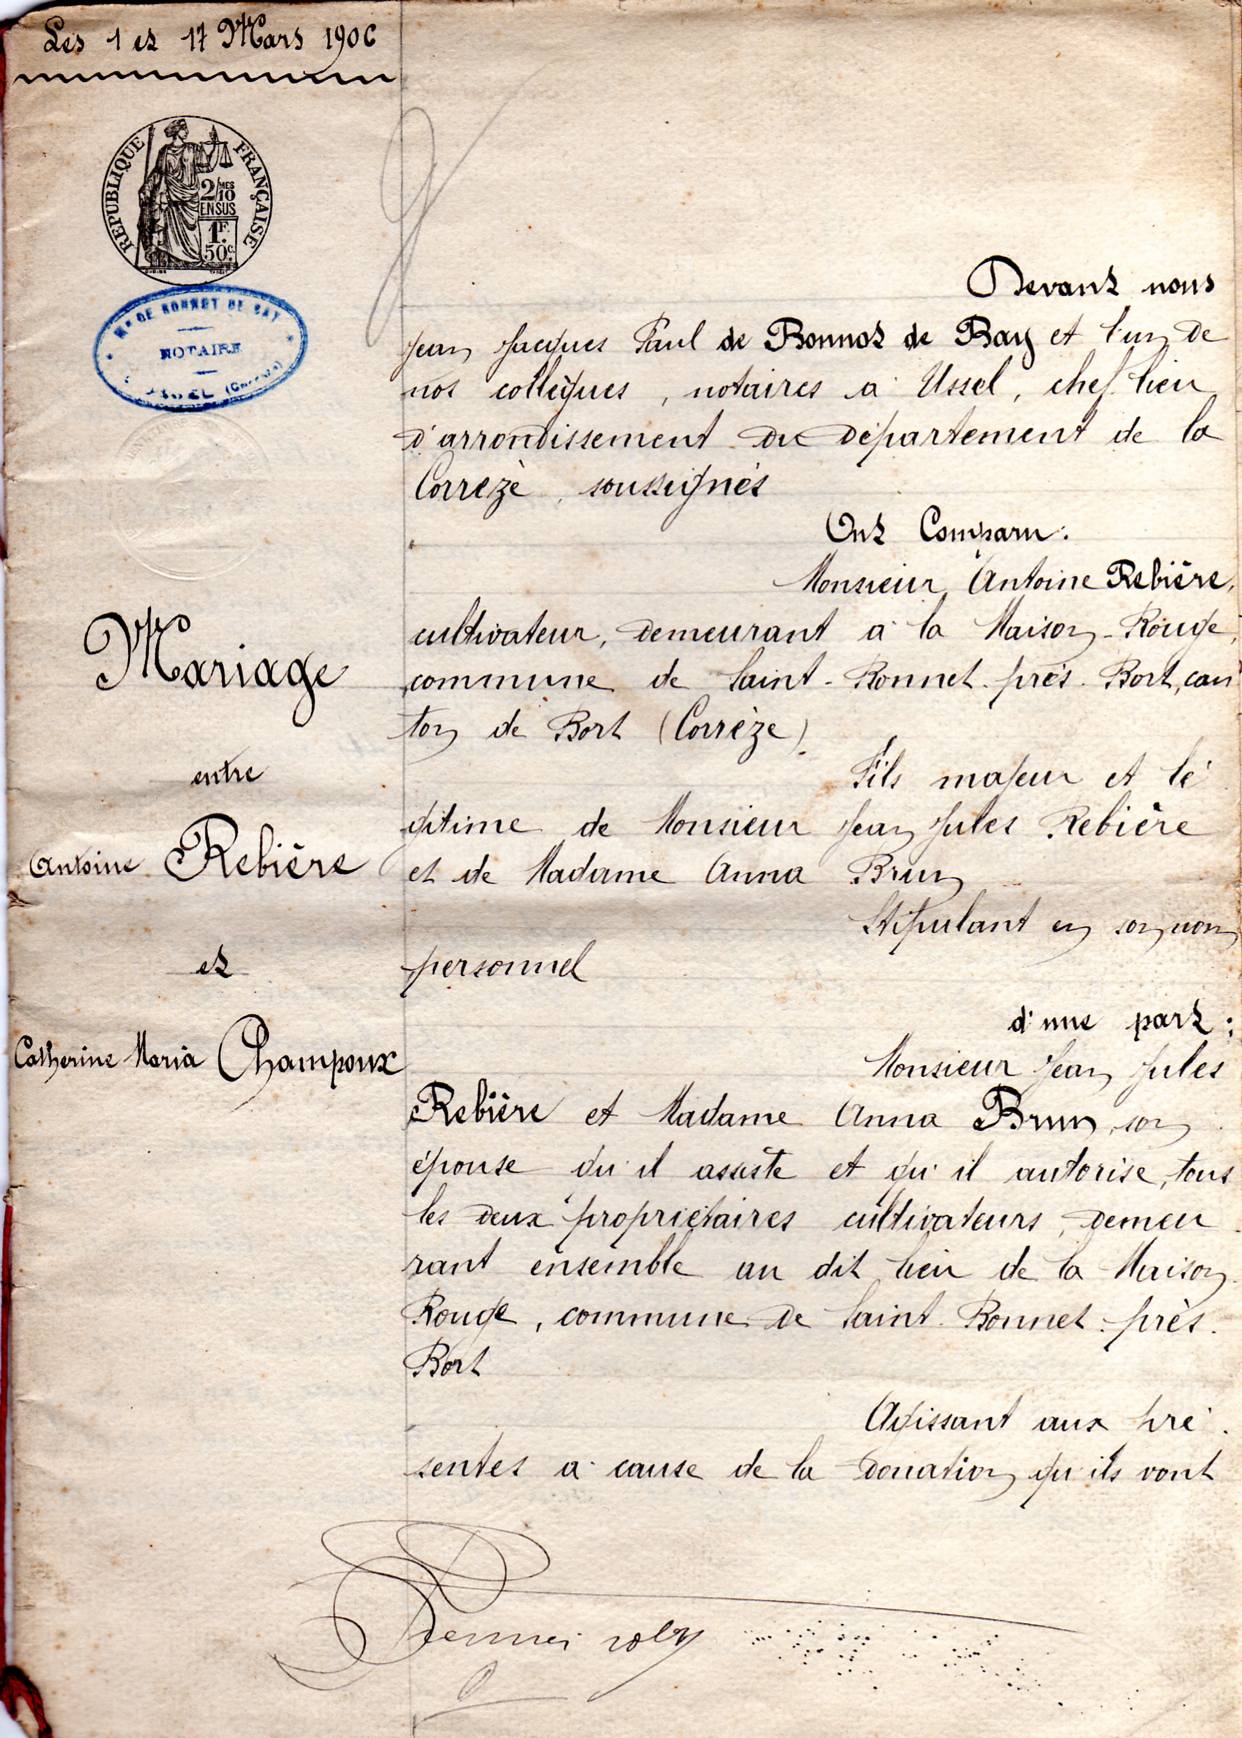 Les 1 et 17 Mars 1906
REPUBLIQUE FRANÇAISE
2/10 MES
EN SUS
1F.
50c.
Me DE BONNET DE BAY
NOTAIRE
USSEL (Corrèze)
Mariage
entre
Antoine Rebière
et
Catherine Maria Champoux
Devant nous
Jean Jacques Paul de Bonnot de Bay et l'un de
nos collègues, notaires à Ussel, chef lieu
d'arrondissement du département de la
Corrèze, soussignés
Ont Comparu:
Monsieur Antoine Rebière,
cultivateur, demeurant à la Maison-Rouge,
commune de Saint-Bonnet-près-Bort, can
ton de Bort (Corrèze)
Fils majeur et lé
gitime de Monsieur Jean Jules Rebière
et de Madame Anna Brun
Stipulant en son nom
personnel
d'une part:
Monsieur Jean Jules
Rebière et Madame Anna Brun, son
épouse qu'il assiste et qu'il autorise, tous
les deux propriétaires cultivateurs, demeu
rant ensemble au dit lieu de la Maison-
Rouge, commune de Saint-Bonnet-près-
Bort
Agissant aux pré
sentes à cause de la donation qu'ils vont